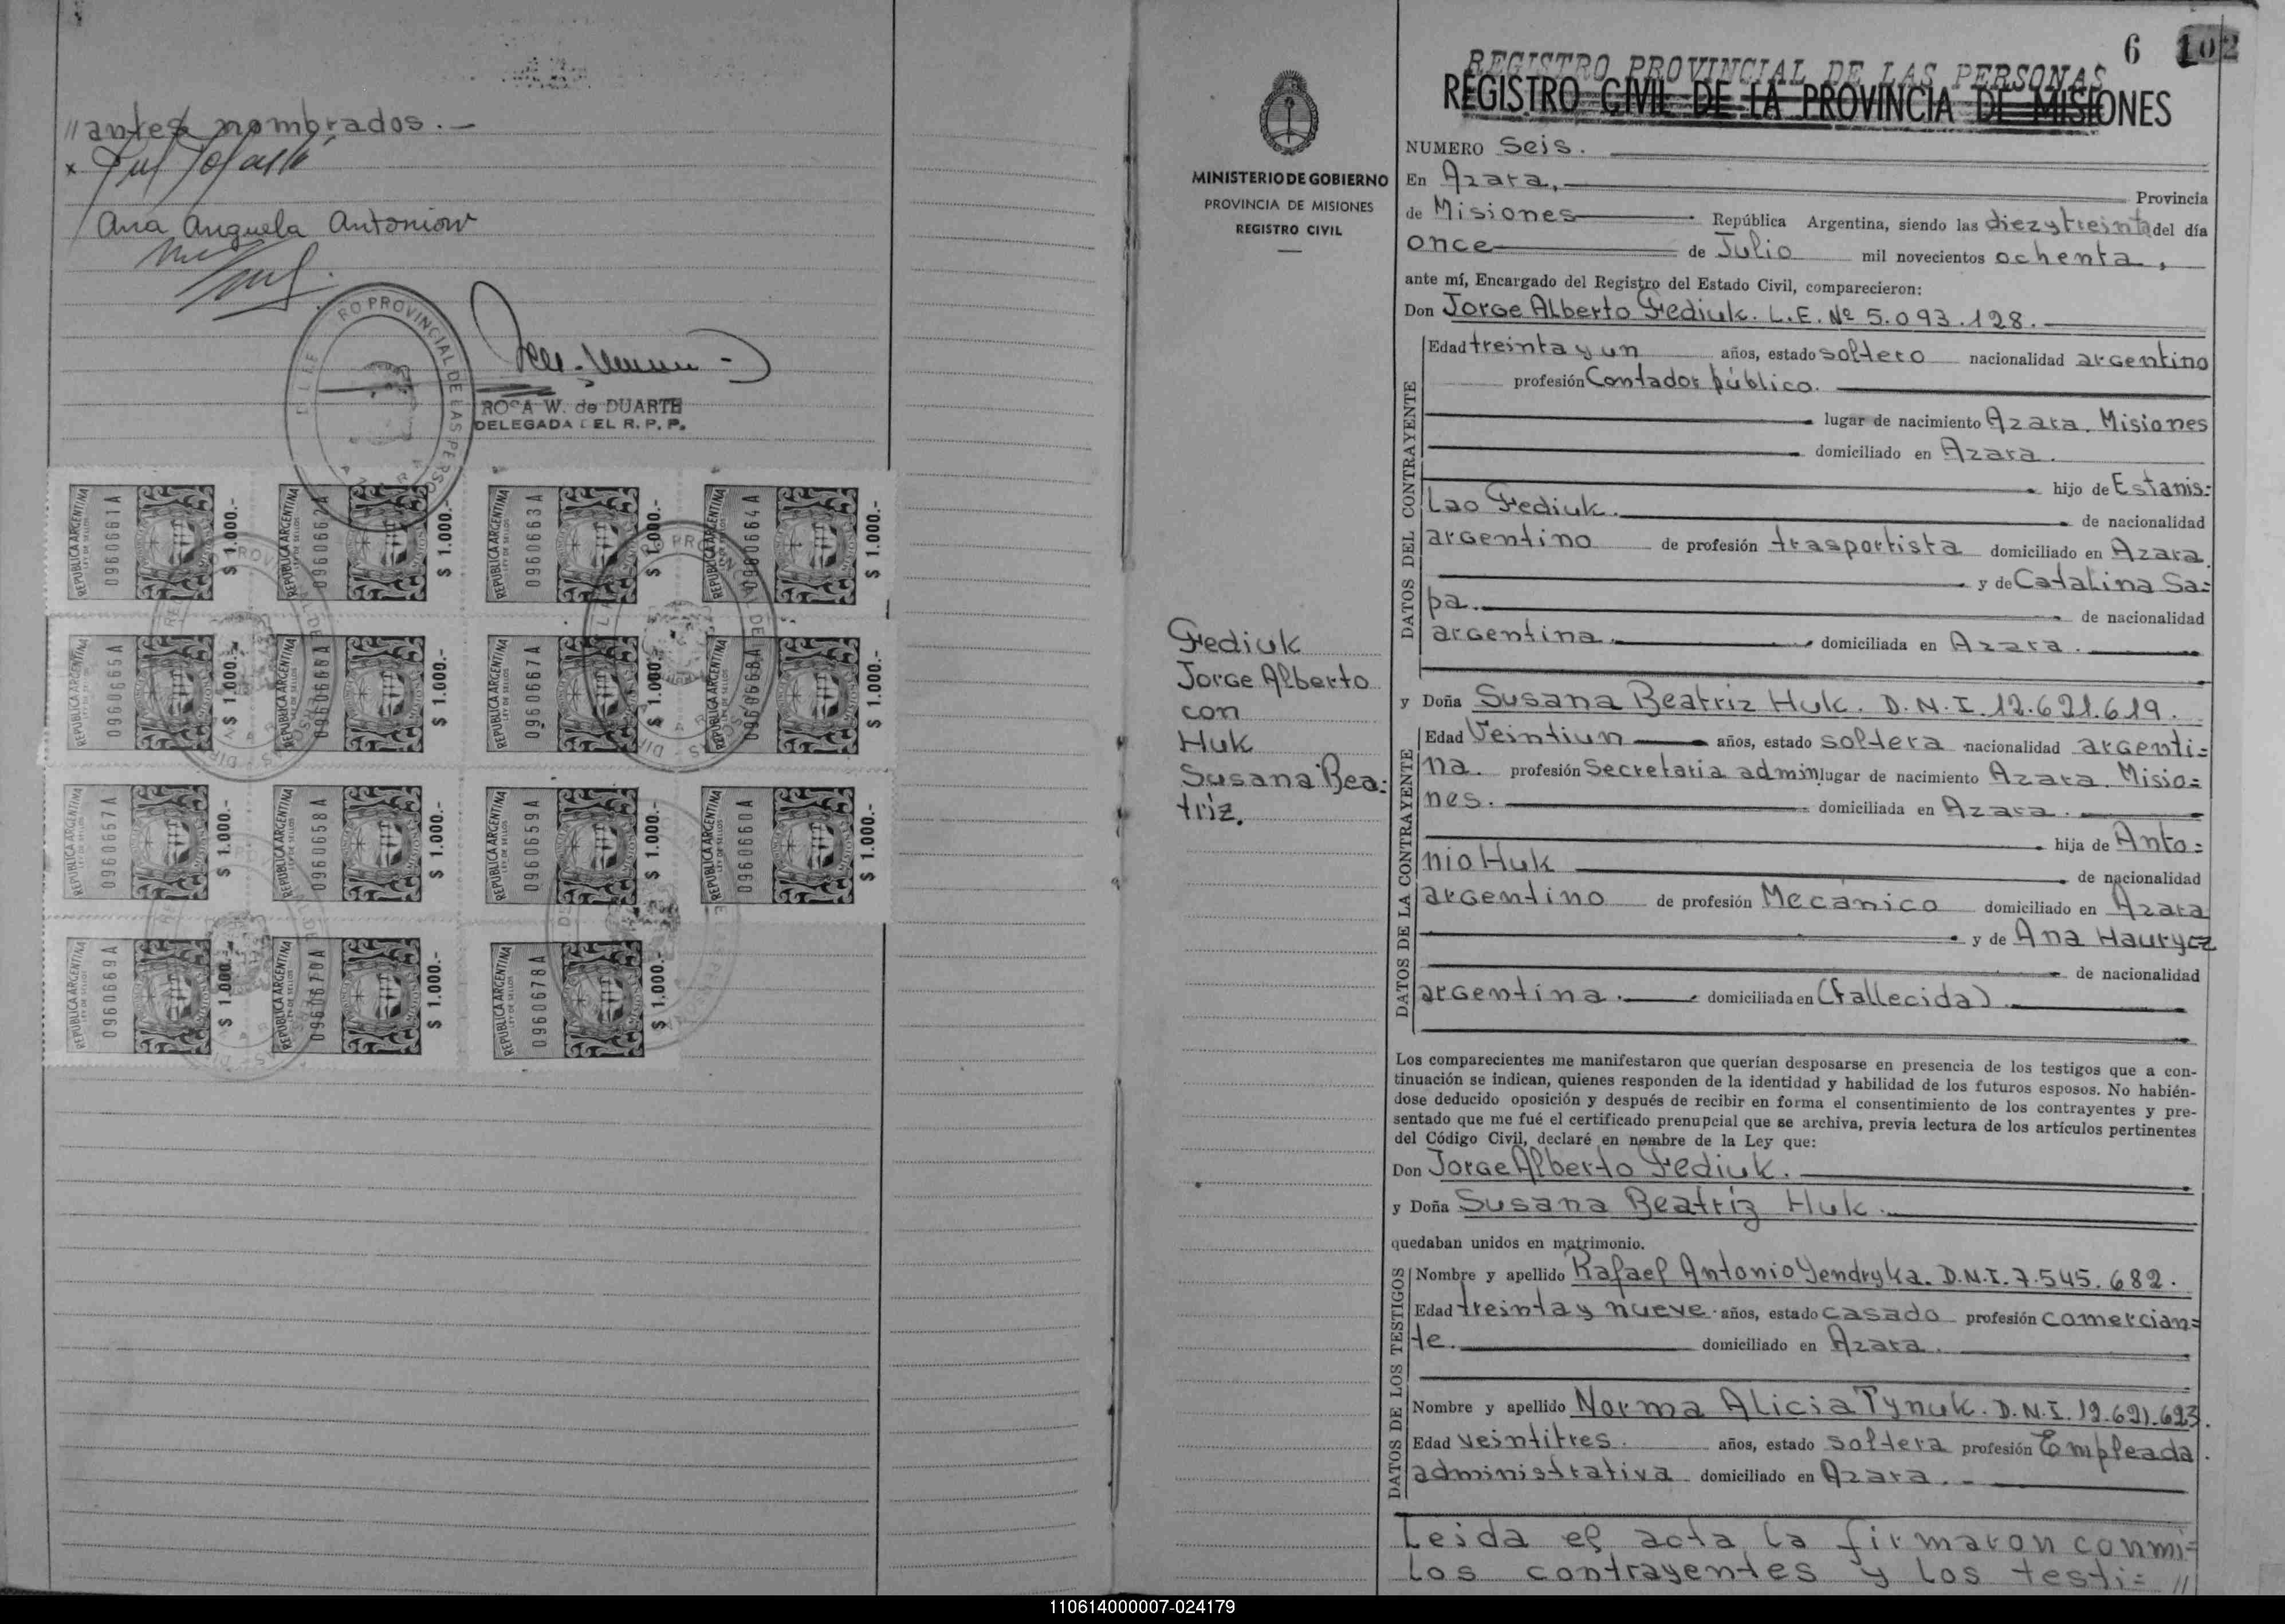 // antes nombrados.—
x
Ana Anguela Antoniow
RO PROVINCIAL DE LAS PERSO
ROSA W. de DUARTE
DELEGADA DEL R. P. P.
REPUBLICA ARGENTINA
LEY DE SELLOS
0960661A
$ 1.000.-
REPUBLICA ARGENTINA
LEY DE SELLOS
0960662A
$ 1.000.-
REPUBLICA ARGENTINA
LEY DE SELLOS
0960663A
$ 1.000.-
REPUBLICA ARGENTINA
LEY DE SELLOS
0960664A
$ 1.000.-
REPUBLICA ARGENTINA
LEY DE SELLOS
0960665A
$ 1.000.-
REPUBLICA ARGENTINA
LEY DE SELLOS
0960666A
$ 1.000.-
REPUBLICA ARGENTINA
LEY DE SELLOS
0960667A
$ 1.000.-
REPUBLICA ARGENTINA
LEY DE SELLOS
0960668A
$ 1.000.-
REPUBLICA ARGENTINA
LEY DE SELLOS
0960657A
$ 1.000.-
REPUBLICA ARGENTINA
LEY DE SELLOS
0960658A
$ 1.000.-
REPUBLICA ARGENTINA
LEY DE SELLOS
0960659A
$ 1.000.-
REPUBLICA ARGENTINA
LEY DE SELLOS
0960660A
$ 1.000.-
REPUBLICA ARGENTINA
LEY DE SELLOS
0960669A
$ 1.000.-
REPUBLICA ARGENTINA
LEY DE SELLOS
0960670A
$ 1.000.-
REPUBLICA ARGENTINA
LEY DE SELLOS
0960678A
$ 1.000.-
MINISTERIO DE GOBIERNO
PROVINCIA DE MISIONES
REGISTRO CIVIL
Fediuk
Jorge Alberto
con
Huk
Susana Bea=
triz.
6 102
REGISTRO PROVINCIAL DE LAS PERSONAS
REGISTRO CIVIL DE LA PROVINCIA DE MISIONES
NUMERO Seis.
En Azara, Provincia
de Misiones República Argentina, siendo las diez y treinta del día
once de Julio mil novecientos ochenta,
ante mí, Encargado del Registro del Estado Civil, comparecieron:
Don Jorge Alberto Fediuk. L.E. Nº 5.093.128.
DATOS DEL CONTRAYENTE
Edad treinta y un años, estado soltero nacionalidad argentino
profesión Contador público.
lugar de nacimiento Azara. Misiones
domiciliado en Azara.
hijo de Estanis=
lao Fediuk. de nacionalidad
argentino de profesión trasportista domiciliado en Azara.
y de Catalina Sa=
pa. de nacionalidad
argentina. domiciliada en Azara.
y Doña Susana Beatriz Huk. D.N.I. 12.621.619.
DATOS DE LA CONTRAYENTE
Edad Veintiun años, estado soltera nacionalidad argenti=
na. profesión Secretaria admin lugar de nacimiento Azara. Misio=
nes. domiciliada en Azara.
hija de Anto=
nio Huk de nacionalidad
argentino de profesión Mecánico domiciliado en Azara
y de Ana Haurycz
de nacionalidad
argentina. domiciliada en (fallecida)
Los comparecientes me manifestaron que querían desposarse en presencia de los testigos que a con-
tinuación se indican, quienes responden de la identidad y habilidad de los futuros esposos. No habién-
dose deducido oposición y después de recibir en forma el consentimiento de los contrayentes y pre-
sentado que me fué el certificado prenupcial que se archiva, previa lectura de los artículos pertinentes
del Código Civil, declaré en nombre de la Ley que:
Don Jorge Alberto Fediuk.
y Doña Susana Beatriz Huk.
quedaban unidos en matrimonio.
DATOS DE LOS TESTIGOS
Nombre y apellido Rafael Antonio Yendryka. D.N.I. 7.545.682.
Edad treinta y nueve años, estado casado profesión comercian=
te. domiciliado en Azara.
Nombre y apellido Norma Alicia Tynuk. D.N.I. 12.621.623.
Edad veintitres. años, estado soltera profesión Empleada
administrativa domiciliado en Azara.
Leida el acta la firmaron conmi=
los contrayentes y los testi= //
110614000007-024179